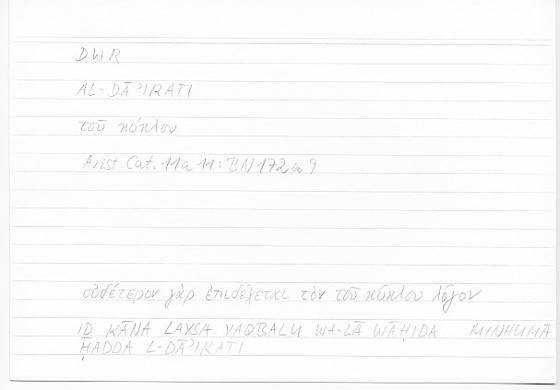 DWR
AL-DĀʾIRATI
τοῦ κύκλου
Arist. Cat. 11a11: BN 172a9
οὐδέτερον γὰρ ἐπιδέχεται τὸν τοῦ κύκλου λόγον
ID KĀNA LAYSA YAQBALU WA-LĀ WĀḤIDA MINHUMĀ
ḤADDA L-DĀʾIRATI